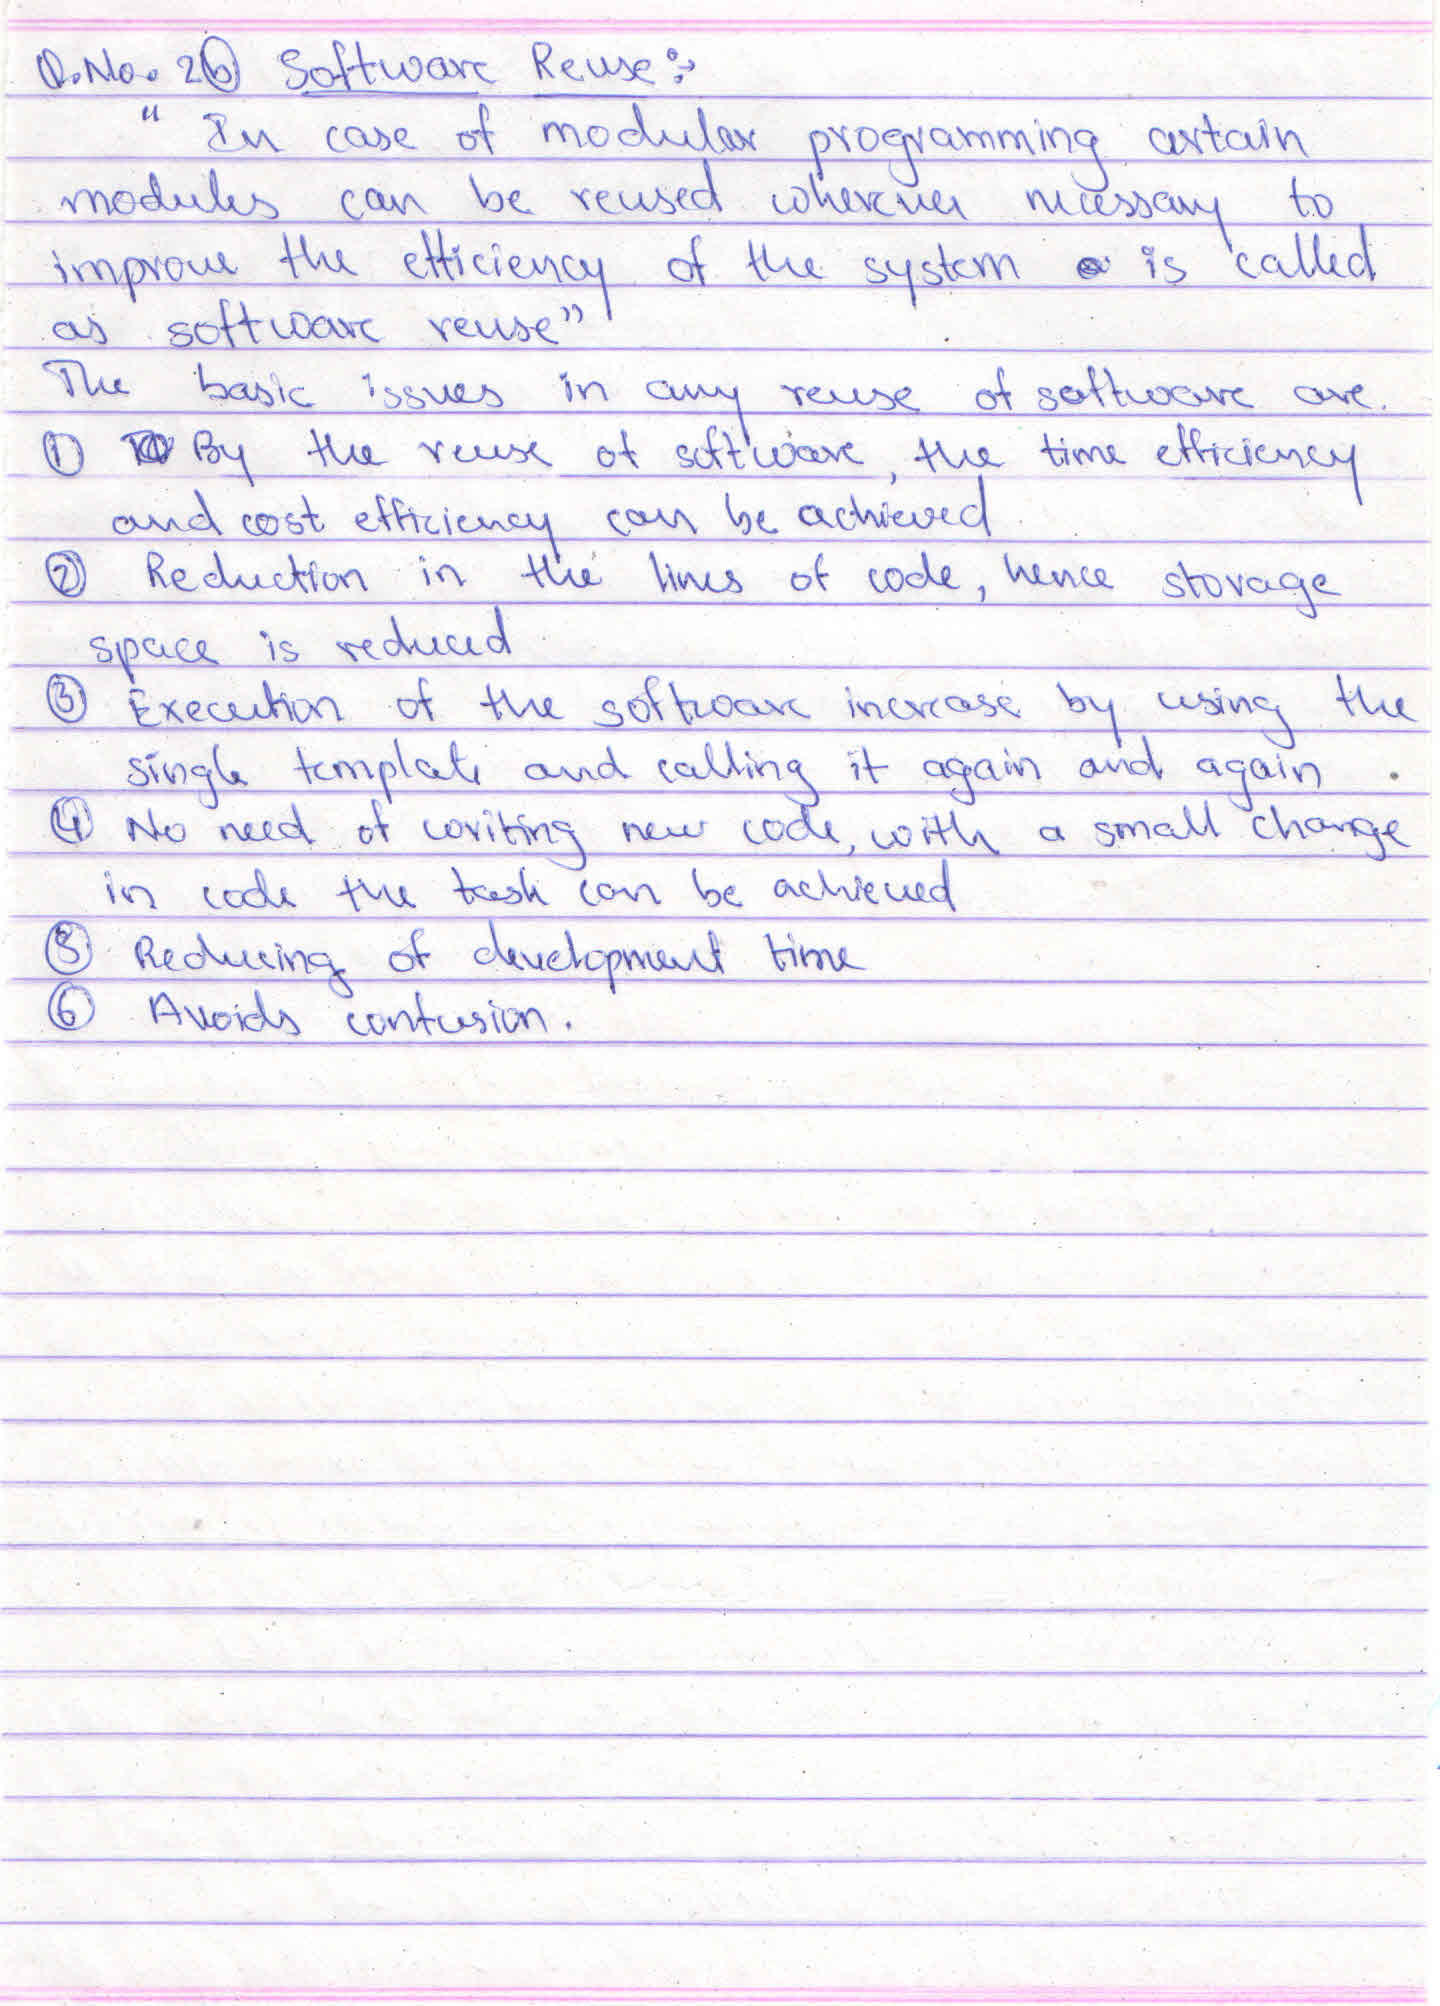 Q.No. 2 b Software Reuse :→
" In case of modular programming certain
modules can be reused wherever necessary to
improve the efficiency of the system is called
as software reuse"
The basic issues in any reuse of software are.
1 By the reuse of software, the time efficiency
and cost efficiency can be achieved
2 Reduction in the lines of code, hence storage
space is reduced
3 Execution of the software increase by using the
single template and calling it again and again .
4 No need of writing new code, with a small change
in code the task can be achieved
5 Reducing of development time
6 Avoids confusion.